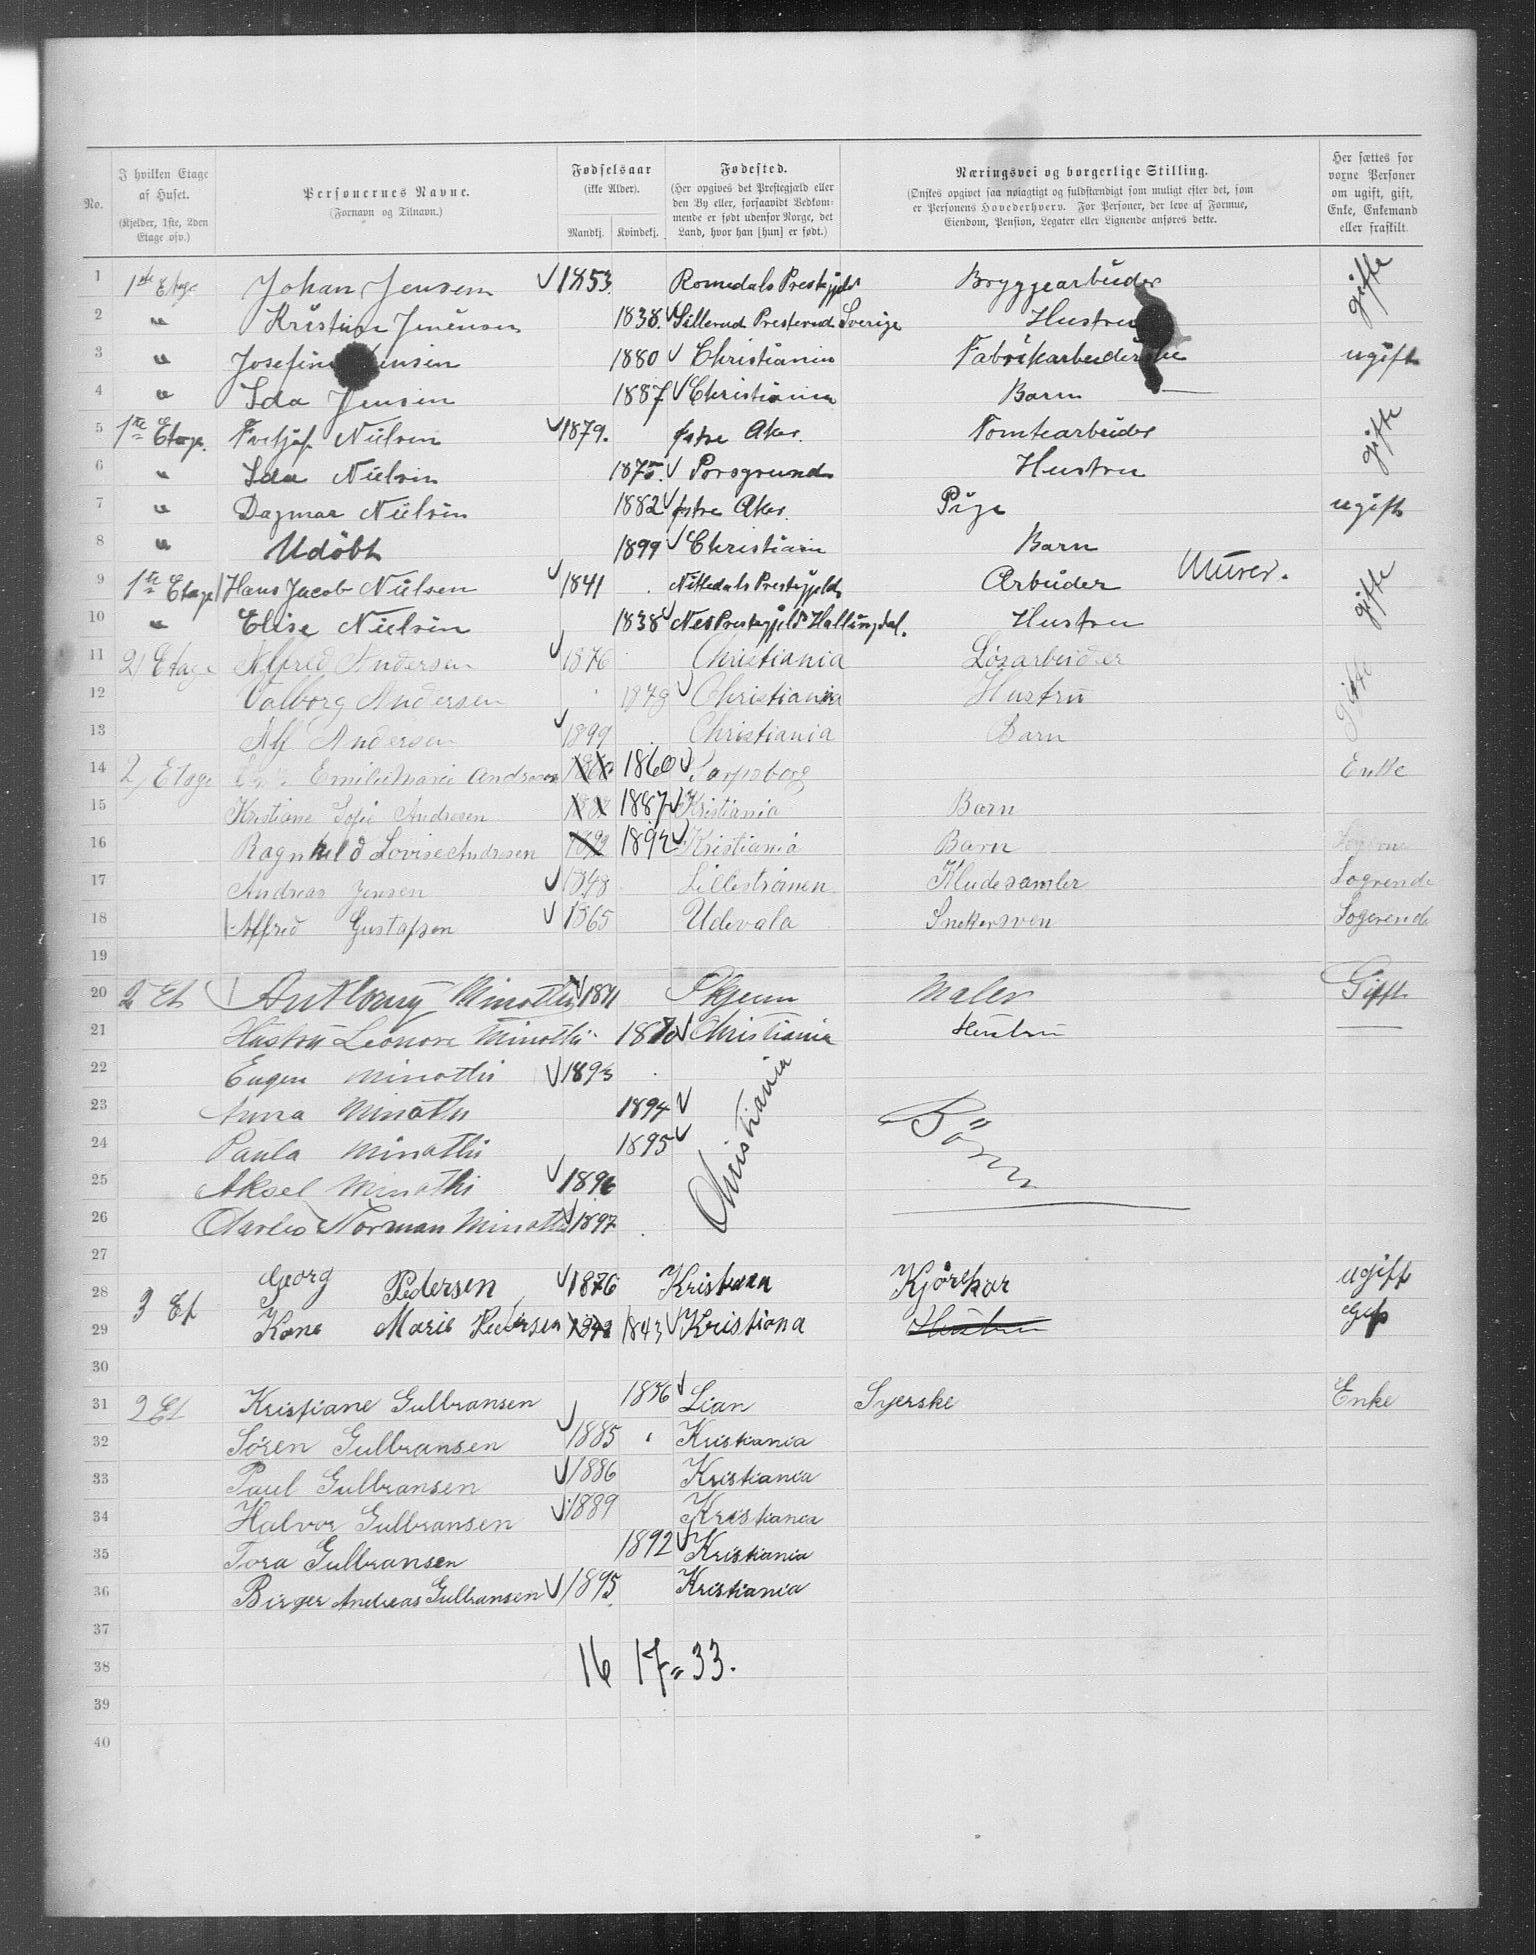 No.
I hvilken Etage af Huset.
(Kjelder, 1ste, 2den Etage osv.)
Personernes Navne.
(Fornavn og Tilnavn.)
Fødselsaar
(ikke Alder).
Mandkj. Kvindekj.
Fødested.
(Her opgives det Prestegjæld eller den By eller, forsaavidt Vedkommende er født udenfor Norge, det Land, hvor han [hun] er født.)
Næringsvei og borgerlige Stilling.
(Ønskes opgivet saa nøiagtigt og fuldstændigt som muligt efter det, som er Personens Hovederhverv. For Personer, der leve af Formue, Eiendom, Pension, Legater eller Lignende anføres dette.
Her sættes for voxne Personer om ugift, gift, Enke, Enkemand eller fraskilt.
1 1ste Etage Johan Jensen 1853 Romedals Prestgjeld Bryggearbeider gifte
2 " 1838. Sillerud Presterud Sverige Hustru
3 " Josefine Jensen 1880 Christiania Fabrikarbeiderske ugift
4 " Ida Jensen 1887 Christiania Barn
5 1ste Etage. Nielsen 1879. østre Aker. Tomtearbeider gifte
6 " Ida Nielsen 1875. Porsgrund Hustru
7 " Dagmar Nielsen 1882 østre Aker. Pige ugift
8 " Udöbt 1899 Christiania Barn
9 1ste Etage Hans Jacob Nielsen 1841 Nittedals Prestgjeld Arbeider Murer. gifte
10 " Elise Nielsen 1838 Nes Prestegjeld Hallingdal. Hustru
11 2) Etage Alfred Andersen 1876 Christiania Løsarbeider gifte
12 Valborg Andersen Christiania Hustru
13 Alf Andersen 1899 Christiania Barn
14 2, Etage Emilie Marie Andresen 1860 Sarpsborg Enke
15 Kristiane Sofie Andresen 1887 Kristiania Barn
16 Ragnhild Lovise Andresen 1892 Kristiania Barn
17 Andreas Jensen 1848 Lilleströmen Kludesamler Logerende
18 Alfred Gustafsen 1865 Udevala Snekersven Logerende
19
20 2 Et Anthony Minothi Skjeum Maler Gift
21 Hustru Leonore Minothi 1870 Christiania Hustru
22 Eugen Minothi 1893
23 Anna Minothi 1894 Christiania Börn
24 Paula Minothi 1895
25 Aksel Minothi 1896
26 Charles Norman Minothi 1897
27
28 3 Et Georg Pedersen 1876 Kristiania ugift
29 Kone Marie Pedersen 1843 Kristiana Hustru Gift
30
31 2 Et Kristiane Gulbransen 1856 Lian Syerske Enke
32 Sören Gulbransen 1885 Kristiania
33 Paul Gulbransen 1886 Kristiania
34 Halvor Gulbransen 1889 Kristiania
35 Tora Gulbransen 1892 Kristiania
36 Birger Andreas Gulbransen 1895 Kristiania
37
38 16 17 = 33.
39
40